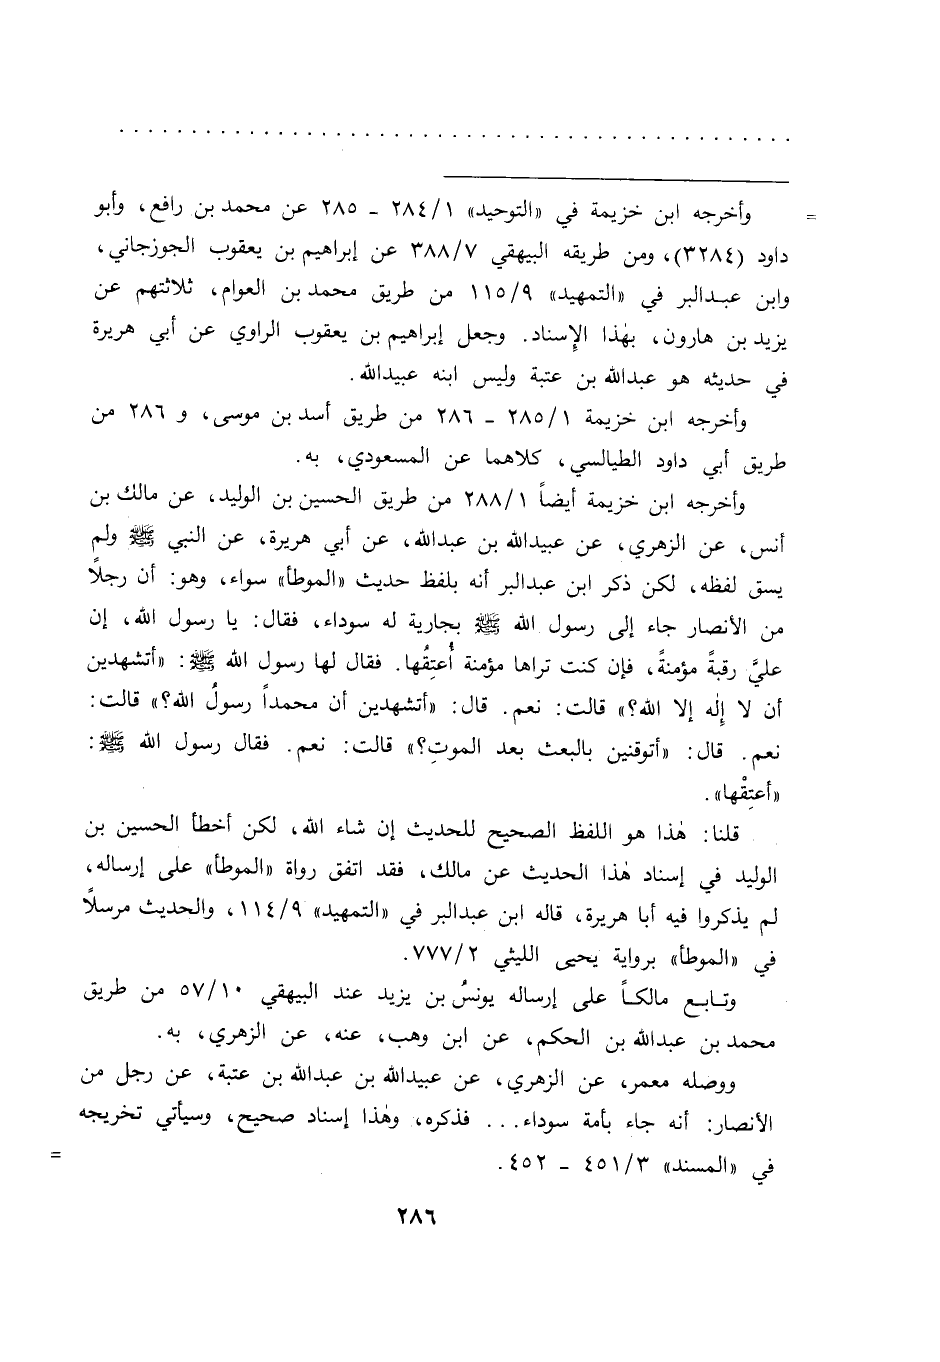 . . . . . . . . . . . . . . . . . . . . . . . . . . . . . . . . . . . . . . . . . . . . . . .
= وأخرجه ابن خزيمة في «التوحيد» ٢٨٤/١ ـ ٢٨٥ عن محمد بن رافع، وأبو
داود (٣٢٨٤)، ومن طريقه البيهقي ٣٨٨/٧ عن إبراهيم بن يعقوب الجوزجاني،
وابن عبدالبر في «التمهيد» ١١٥/٩ من طريق محمد بن العوام، ثلاثتهم عن
يزيد بن هارون، بهٰذا الإِسناد. وجعل إبراهيم بن يعقوب الراوي عن أبي هريرة
في حديثه هو عبدالله بن عتبة وليس ابنه عبيدالله.
وأخرجه ابن خزيمة ٢٨٥/١ ـ ٢٨٦ من طريق أسد بن موسى، و ٢٨٦ من
طريق أبي داود الطيالسي، كلاهما عن المسعودي، به.
وأخرجه ابن خزيمة أيضاً ٢٨٨/١ من طريق الحسين بن الوليد، عن مالك بن
أنس، عن الزهري، عن عبيدالله بن عبدالله، عن أبي هريرة، عن النبي ﷺ ولم
يسق لفظه، لكن ذكر ابن عبدالبر أنه بلفظ حديث «الموطأ» سواء، وهو: أن رجلًا
من الأنصار جاء إلى رسول الله ﷺ بجارية له سوداء، فقال: يا رسول الله، إن
عليَّ رقبةً مؤمنةً، فإن كنت تراها مؤمنة أُعتِقُها. فقال لها رسول الله ﷺ: «أتشهدين
أن لا إِلٰه إلا الله؟» قالت: نعم. قال: «أتشهدين أن محمداً رسولُ الله؟» قالت:
نعم. قال: «أتوقنين بالبعث بعد الموتِ؟» قالت: نعم. فقال رسول الله ﷺ:
«أعتِقْها».
قلنا: هٰذا هو اللفظ الصحيح للحديث إن شاء الله، لكن أخطأ الحسين بن
الوليد في إسناد هٰذا الحديث عن مالك، فقد اتفق رواة «الموطأ» على إرساله،
لم يذكروا فيه أبا هريرة، قاله ابن عبدالبر في «التمهيد» ١١٤/٩، والحديث مرسلًا
في «الموطأ» برواية يحيى الليثي ٧٧٧/٢.
وتابع مالكاً على إرساله يونسُ بن يزيد عند البيهقي ٥٧/١٠ من طريق
محمد بن عبدالله بن الحكم، عن ابن وهب، عنه، عن الزهري، به.
ووصله معمر، عن الزهري، عن عبيدالله بن عبدالله بن عتبة، عن رجل من
الأنصار: أنه جاء بأمة سوداء... فذكره، وهٰذا إسناد صحيح، وسيأتي تخريجه
في «المسند» ٤٥١/٣ ـ ٤٥٢. =
٢٨٦